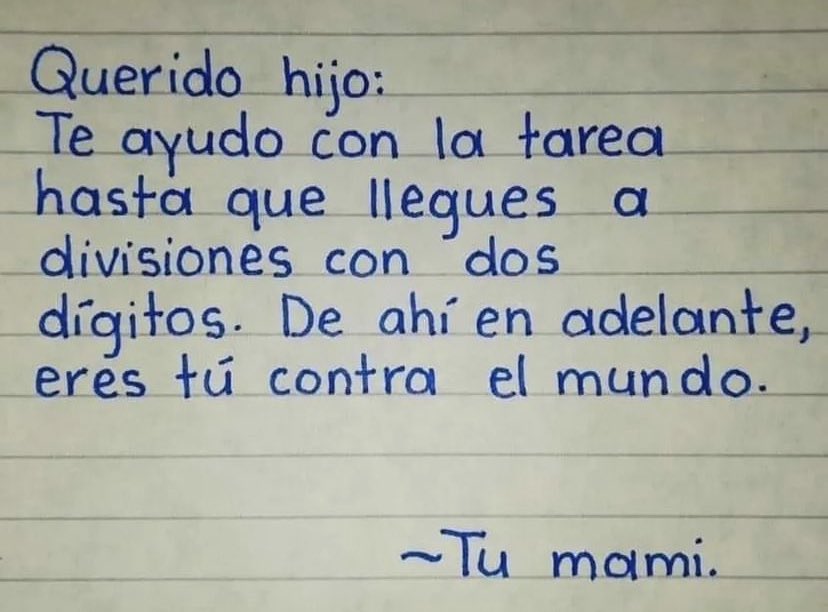 Querido hijo:
Te ayudo con la tarea
hasta que llegues a
divisiones con dos
dígitos. De ahí en adelante,
eres tú contra el mundo.
~Tu mami.